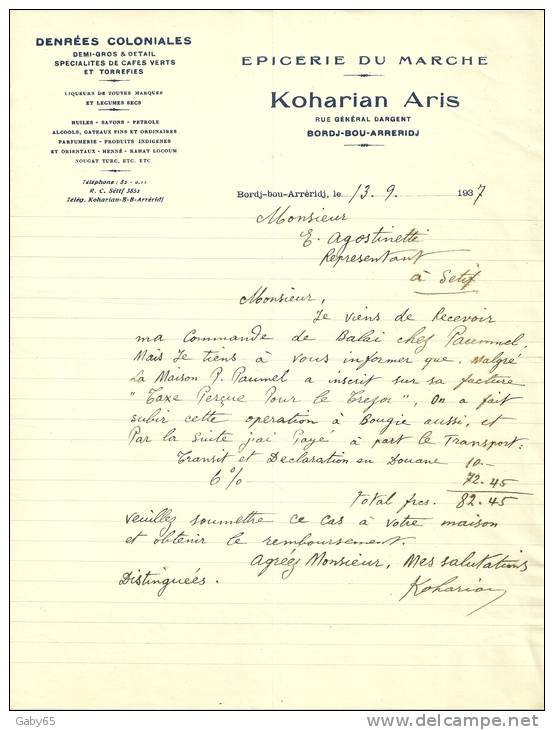 DENRÉES COLONIALES
DEMI-GROS & DETAIL
SPECIALITES DE CAFES VERTS
ET TORREFIES
LIQUEURS DE TOUTES MARQUES
ET LEGUMES SECS
HUILES - SAVONS - PETROLE
ALCOOLS, GATEAUX FINS ET ORDINAIRES
PARFUMERIE - PRODUITS INDIGENES
ET ORIENTAUX - HENNÉ - RAHAT LOCOUM
NOUGAT TURC, ETC. ETC.
Téléphone : 85 - 0.11
R. C. Sétif 3852
Télég. Koharian-B-B-Arréridj
EPICERIE DU MARCHE
Koharian Aris
RUE GÉNÉRAL DARGENT
BORDJ-BOU-ARRERIDJ
Bordj-bou-Arréridj, le 13. 9. 1937
Monsieur
E. Agostinetti
Représentant
à Setif
Monsieur,
Je viens de Recevoir
ma Commande de Balai chez Paummel.
Mais Je tiens à vous informer que, Malgré
La Maison P. Paumel a inscrit sur sa facture
" Taxe Perçue Pour le Tresor ", On a fait
subir cette operation à Bougie aussi, et
Par la Suite j'ai Payé à part le Transport:
Transit et Declaration en Douane 10.-
6 % 72.45
total frcs. 82.45
veuillez soumettre ce cas à votre maison
et obtenir le remboursement.
Agréez Monsieur, Mes salutations
Distinguées.
Koharian
Gaby65
www.delcampe.net